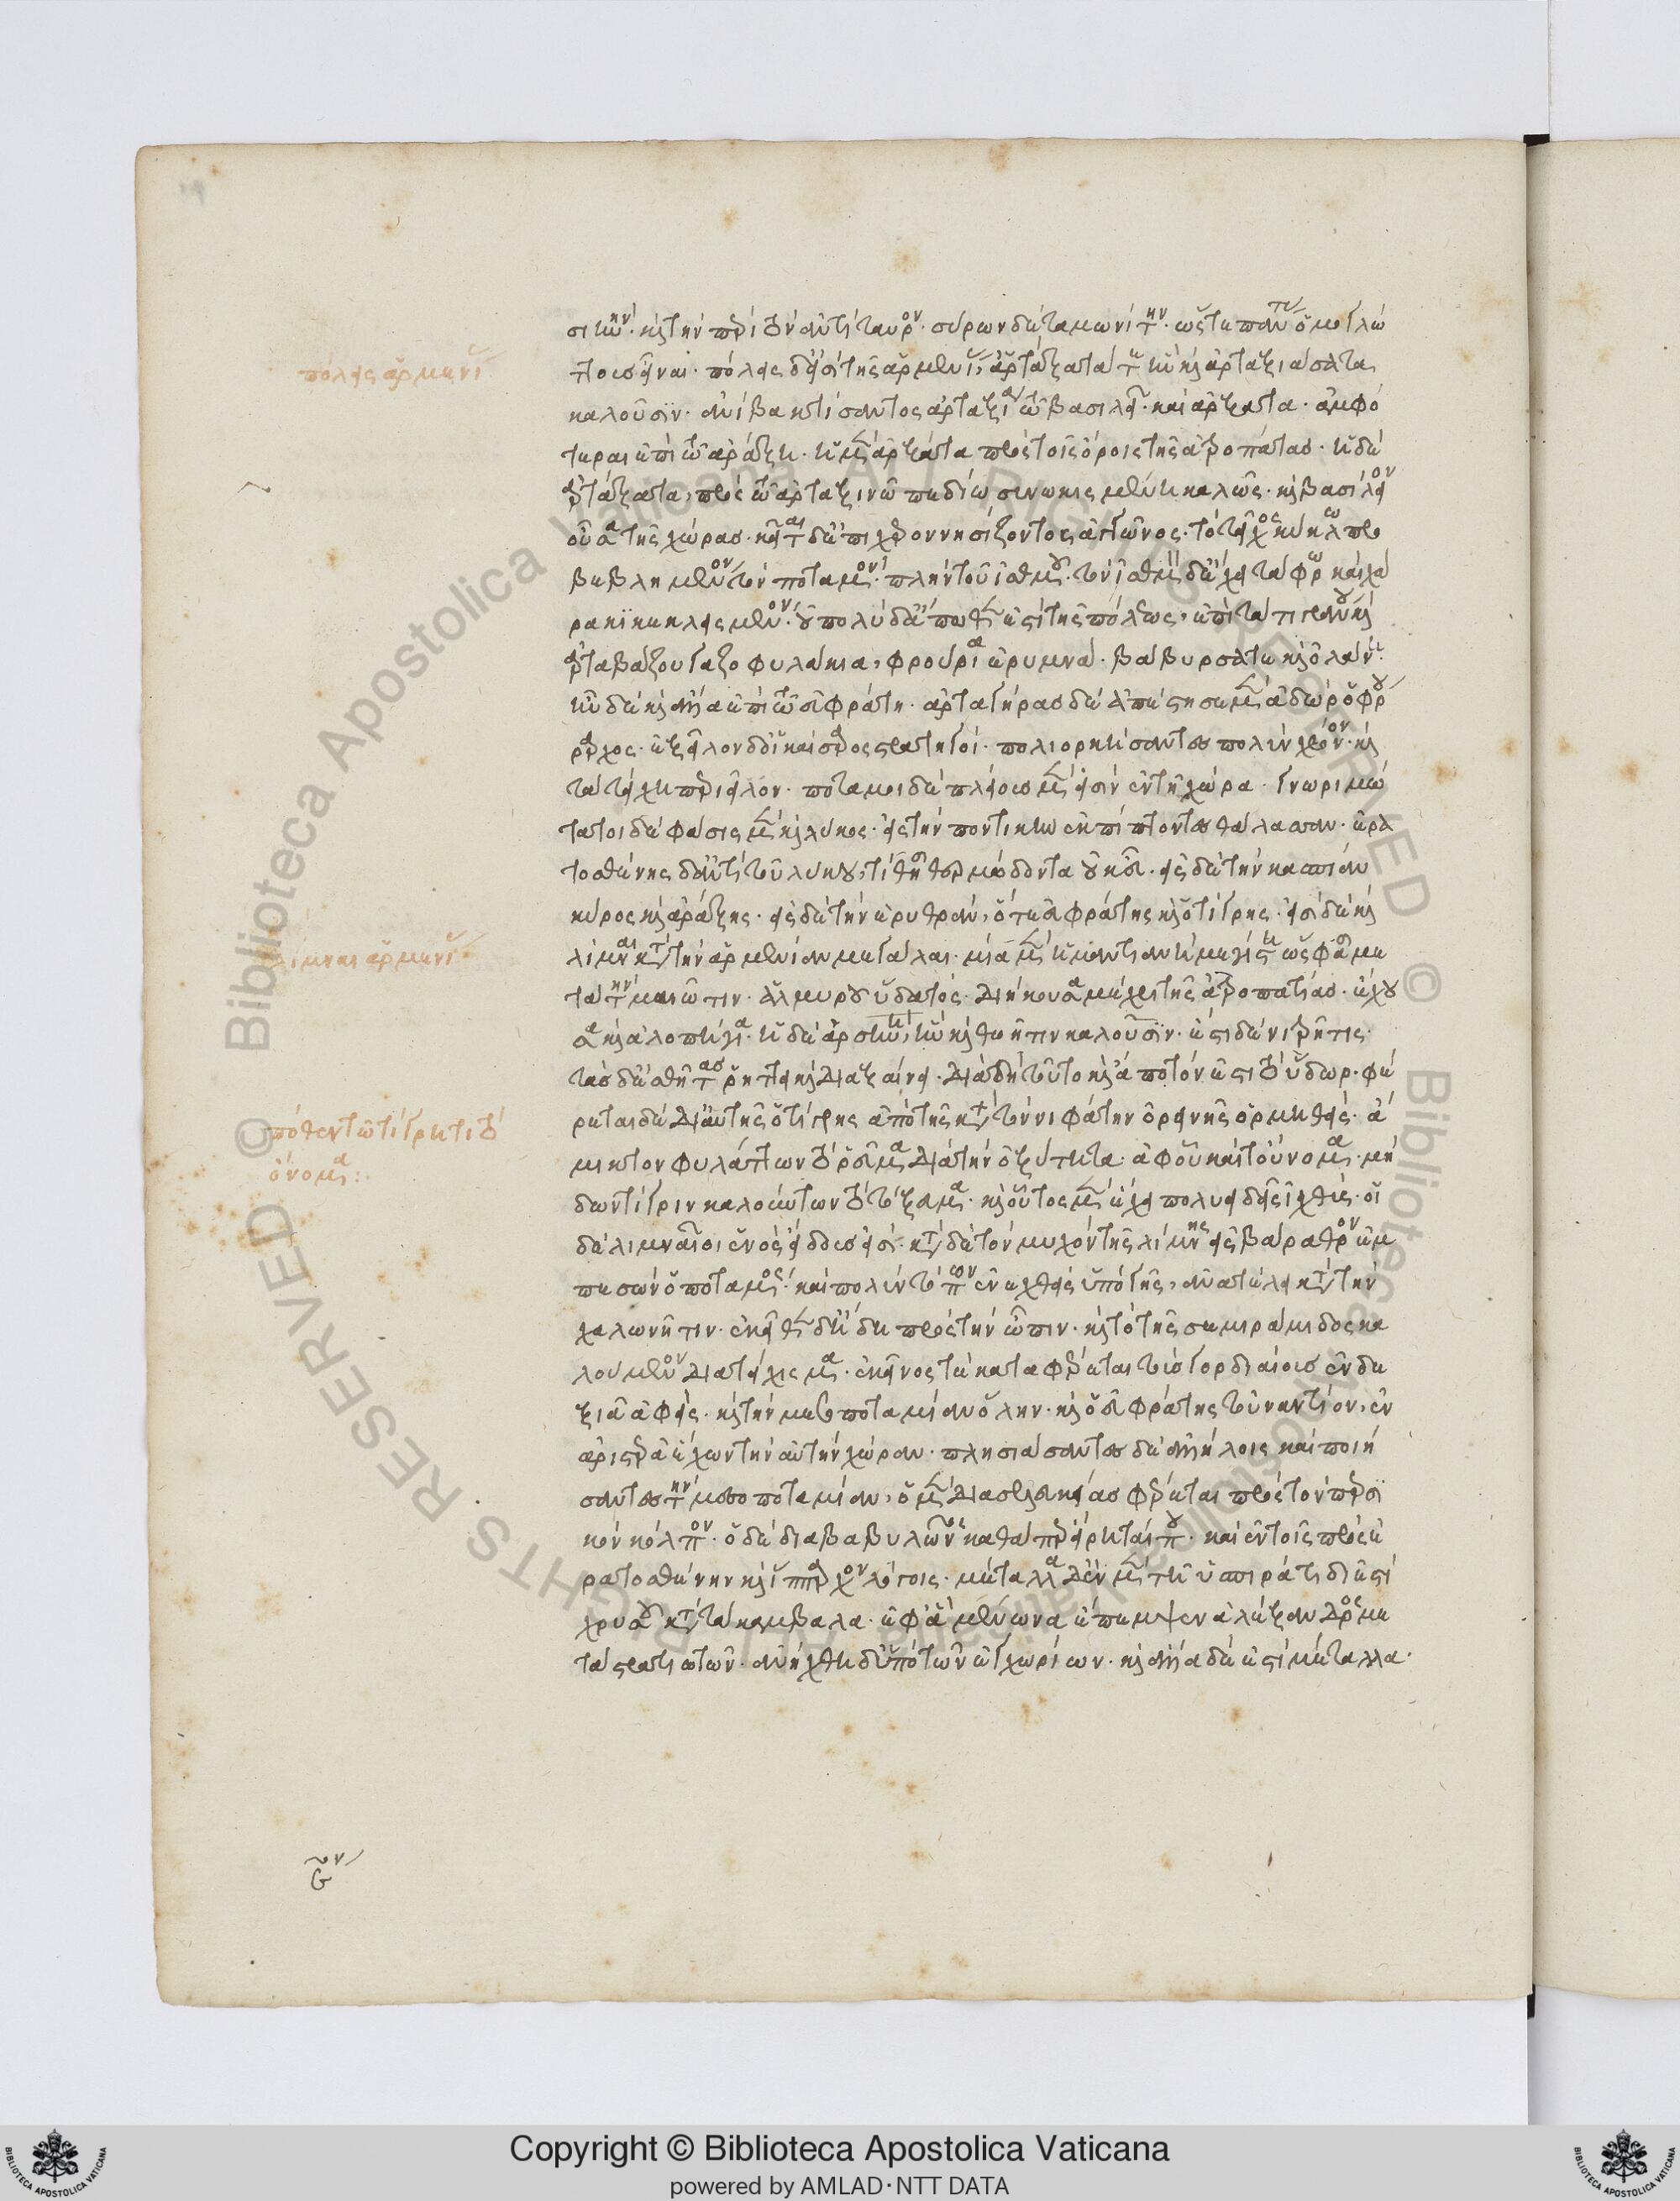 σικὴν· καὶ τὴν περὶ τὸν ἀντίταυρον· σύρων δὲ ταμωνῖτην· ὥστε πάντας ὁμογλώ
ττους εἶναι· πόλεις δ' εἰσὶ τῆς ἀρμενίας, ἀρτάξατά τε ἣν καὶ ἀρταξιάσατα
καλοῦσιν· ἀννίβα κτίσαντος ἀρταξίᾳ τῷ βασιλεῖ· καὶ ἄρξατα· ἀμφό
τεραι ἐπὶ τῷ ἀράξῃ· ἡ μὲν ἄρξατα πρὸς τοῖς ὅροις τῆς ἀτροπάτας· ἡ δὲ
ἀρτάξατα, πρὸς τῷ ἀρταξινῷ πεδίῳ συνωκισμένη καλῶς· καὶ βασίλειον
οὖσα τῆς χώρας· κεῖται δ' ἐπὶ χερρονησίζοντος ἀγκῶνος· τὸ τεῖχος κύκλῳ προ
βεβλημένον τὸν ποταμόν· πλὴν τοῦ ἰσθμοῦ· τὸν ἰσθμὸν δ' ἔχει τάφρῳ καὶ χά
ρακι κεκλειμένον· οὐ πολὺ δ' ἄπωθεν ἐστὶ τῆς πόλεως, ἐπὶ τὰ τιγράνου καὶ
ἀρταβάζου γαζοφυλάκια, φρούρια ἐρυμνά· βάβυρσά τε καὶ ὀλανή·
ἦν δὲ καὶ ἄλλα ἐπὶ τῷ εὐφράτῃ· ἀρταγήρας δὲ ἀπέστησε μὲν ἀδὼρ ὁ φρού
ραρχος· ἐξεῖλον δ' οἱ καίσαρος στρατηγοί· πολιορκήσαντες πολὺν χρόνον· καὶ
τὰ τείχη περιεῖλον· ποταμοὶ δὲ πλείους μὲν εἰσὶν ἐν τῇ χώρᾳ· γνωριμώ
τατοι δὲ φᾶσις μὲν καὶ λύκος· εἰς τὴν ποντικὴν ἐκπίπτοντες θάλασσαν· ἐρα
τοσθένης δ' ἀντὶ τοῦ λύκου, τίθησι θερμώδοντα οὐκ εὖ· εἰς δὲ τὴν κασπίαν
κύρος καὶ ἀράξης· εἰς δὲ τὴν ἐρυθράν, ὅ τε εὐφράτης καὶ ὁ τίγρης· εἰσὶ δὲ καὶ
λίμναι κατὰ τὴν ἀρμενίαν μεγάλαι· μία μὲν ἡ μαντιανὴ μεγίστη ὥς φασι με
τὰ τὴν μαιῶτιν· ἁλμυροῦ ὕδατος· διήκουσα μέχρι τῆς ἀτροπατίας· ἔχου
σα καὶ ἁλοπήγια· ἡ δὲ ἀρσηνή, ἣν καὶ θωῆτιν καλοῦσιν· ἔστι δὲ νιτρῆτις·
τὰς δ' ἐσθῆτας ῥήττει καὶ διαξαίνει· διὰ δὲ τοῦτο καὶ ἄποτόν ἐστι τὸ ὕδωρ· φέ
ρεται δὲ δι' αὐτῆς ὁ τίγρης ἀπὸ τῆς κατὰ τὸν νιφάτην ὀρεινῆς ὁρμηθείς· ἄ
μικτον φυλάττων τὸ ῥεῦμα διὰ τὴν ὀξύτητα· ἀφ' οὗ καὶ τοὔνομα· μή
δων τίγριν καλούντων τὸ τόξευμα· καὶ οὗτος μὲν ἔχει πολυειδεῖς ἰχθύς· οἱ
δὲ λιμναῖοι ἑνὸς εἴδους εἰσί· κατὰ δὲ τὸν μυχὸν τῆς λίμνης εἰς βάραθρον ἐμ
πεσὼν ὁ ποταμός· καὶ πολὺν τόπον ἐνεχθεὶς ὑπὸ γῆς, ἀνατέλλει κατὰ τὴν
χαλωνῆτιν· ἐκεῖθεν δ' ἤδη πρὸς τὴν ὦπιν· καὶ τὸ τῆς σεμιράμιδος κα
λούμενον διατείχισμα· ἐκεῖνός τε καταφέρεται τοὺς γορδιαίους ἐν δε
ξιᾷ ἀφεὶς· καὶ τὴν μεσοποταμίαν ὅλην· καὶ ὁ εὐφράτης τοὐναντίον, ἐν
ἀριστερᾷ ἔχων τὴν αὐτὴν χώραν· πλησιάσαντες δὲ ἀλλήλοις καὶ ποιή
σαντες τὴν μεσοποταμίαν, ὁ μὲν διὰ σελευκείας φέρεται πρὸς τὸν περσι
κὸν κόλπον· ὁ δὲ διὰ βαβυλῶνος καθάπερ εἴρηταί που· καὶ ἐν τοῖς πρὸς ἐ
ρατοσθένην καὶ ἵππαρχον λόγοις· μέταλλα δ' ἐν μὲν τῇ ὑσπιράτιδι ἐστὶ
χρυσοῦ κατὰ τὰ κάμβαλα· ἐφ' ἃ μένωνα ἔπεμψεν ἀλέξανδρος με
τὰ στρατιωτῶν· ἀνήχθη δ' ὑπὸ τῶν ἐγχωρίων· καὶ ἄλλα δέ ἐστι μέταλλα·
πόλεις ἀρμενίας
λίμναι ἀρμενίας
πόθεν τῷ τίγρητι τὸ
ὄνομα: